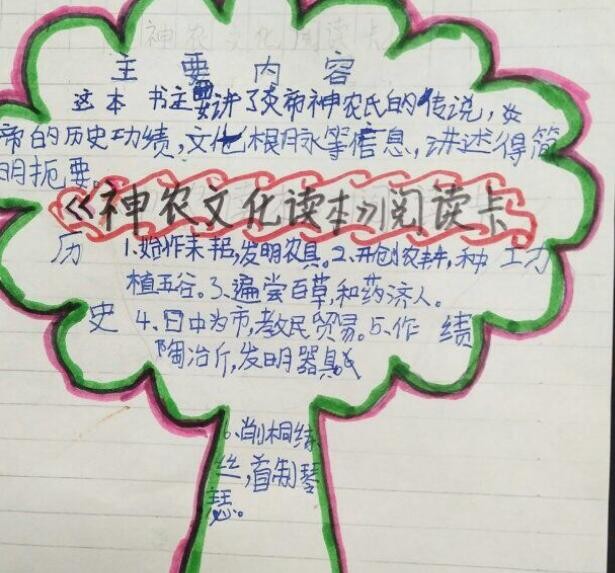 神农文化阅读卡
主要内容
这本书主要讲了炎帝神农氏的传说,炎
帝的历史功绩,文化根脉等信息,讲述得简
明扼要。
《神农文化读本》阅读卡
历 1.始作耒耜,发明农具。2.开创农耕,种 功
植五谷。3.遍尝百草,和药济人。
史 4.日中为市,教民贸易。5.作 绩
陶冶斤,发明器具。
6.削桐练
丝,首制琴
瑟。